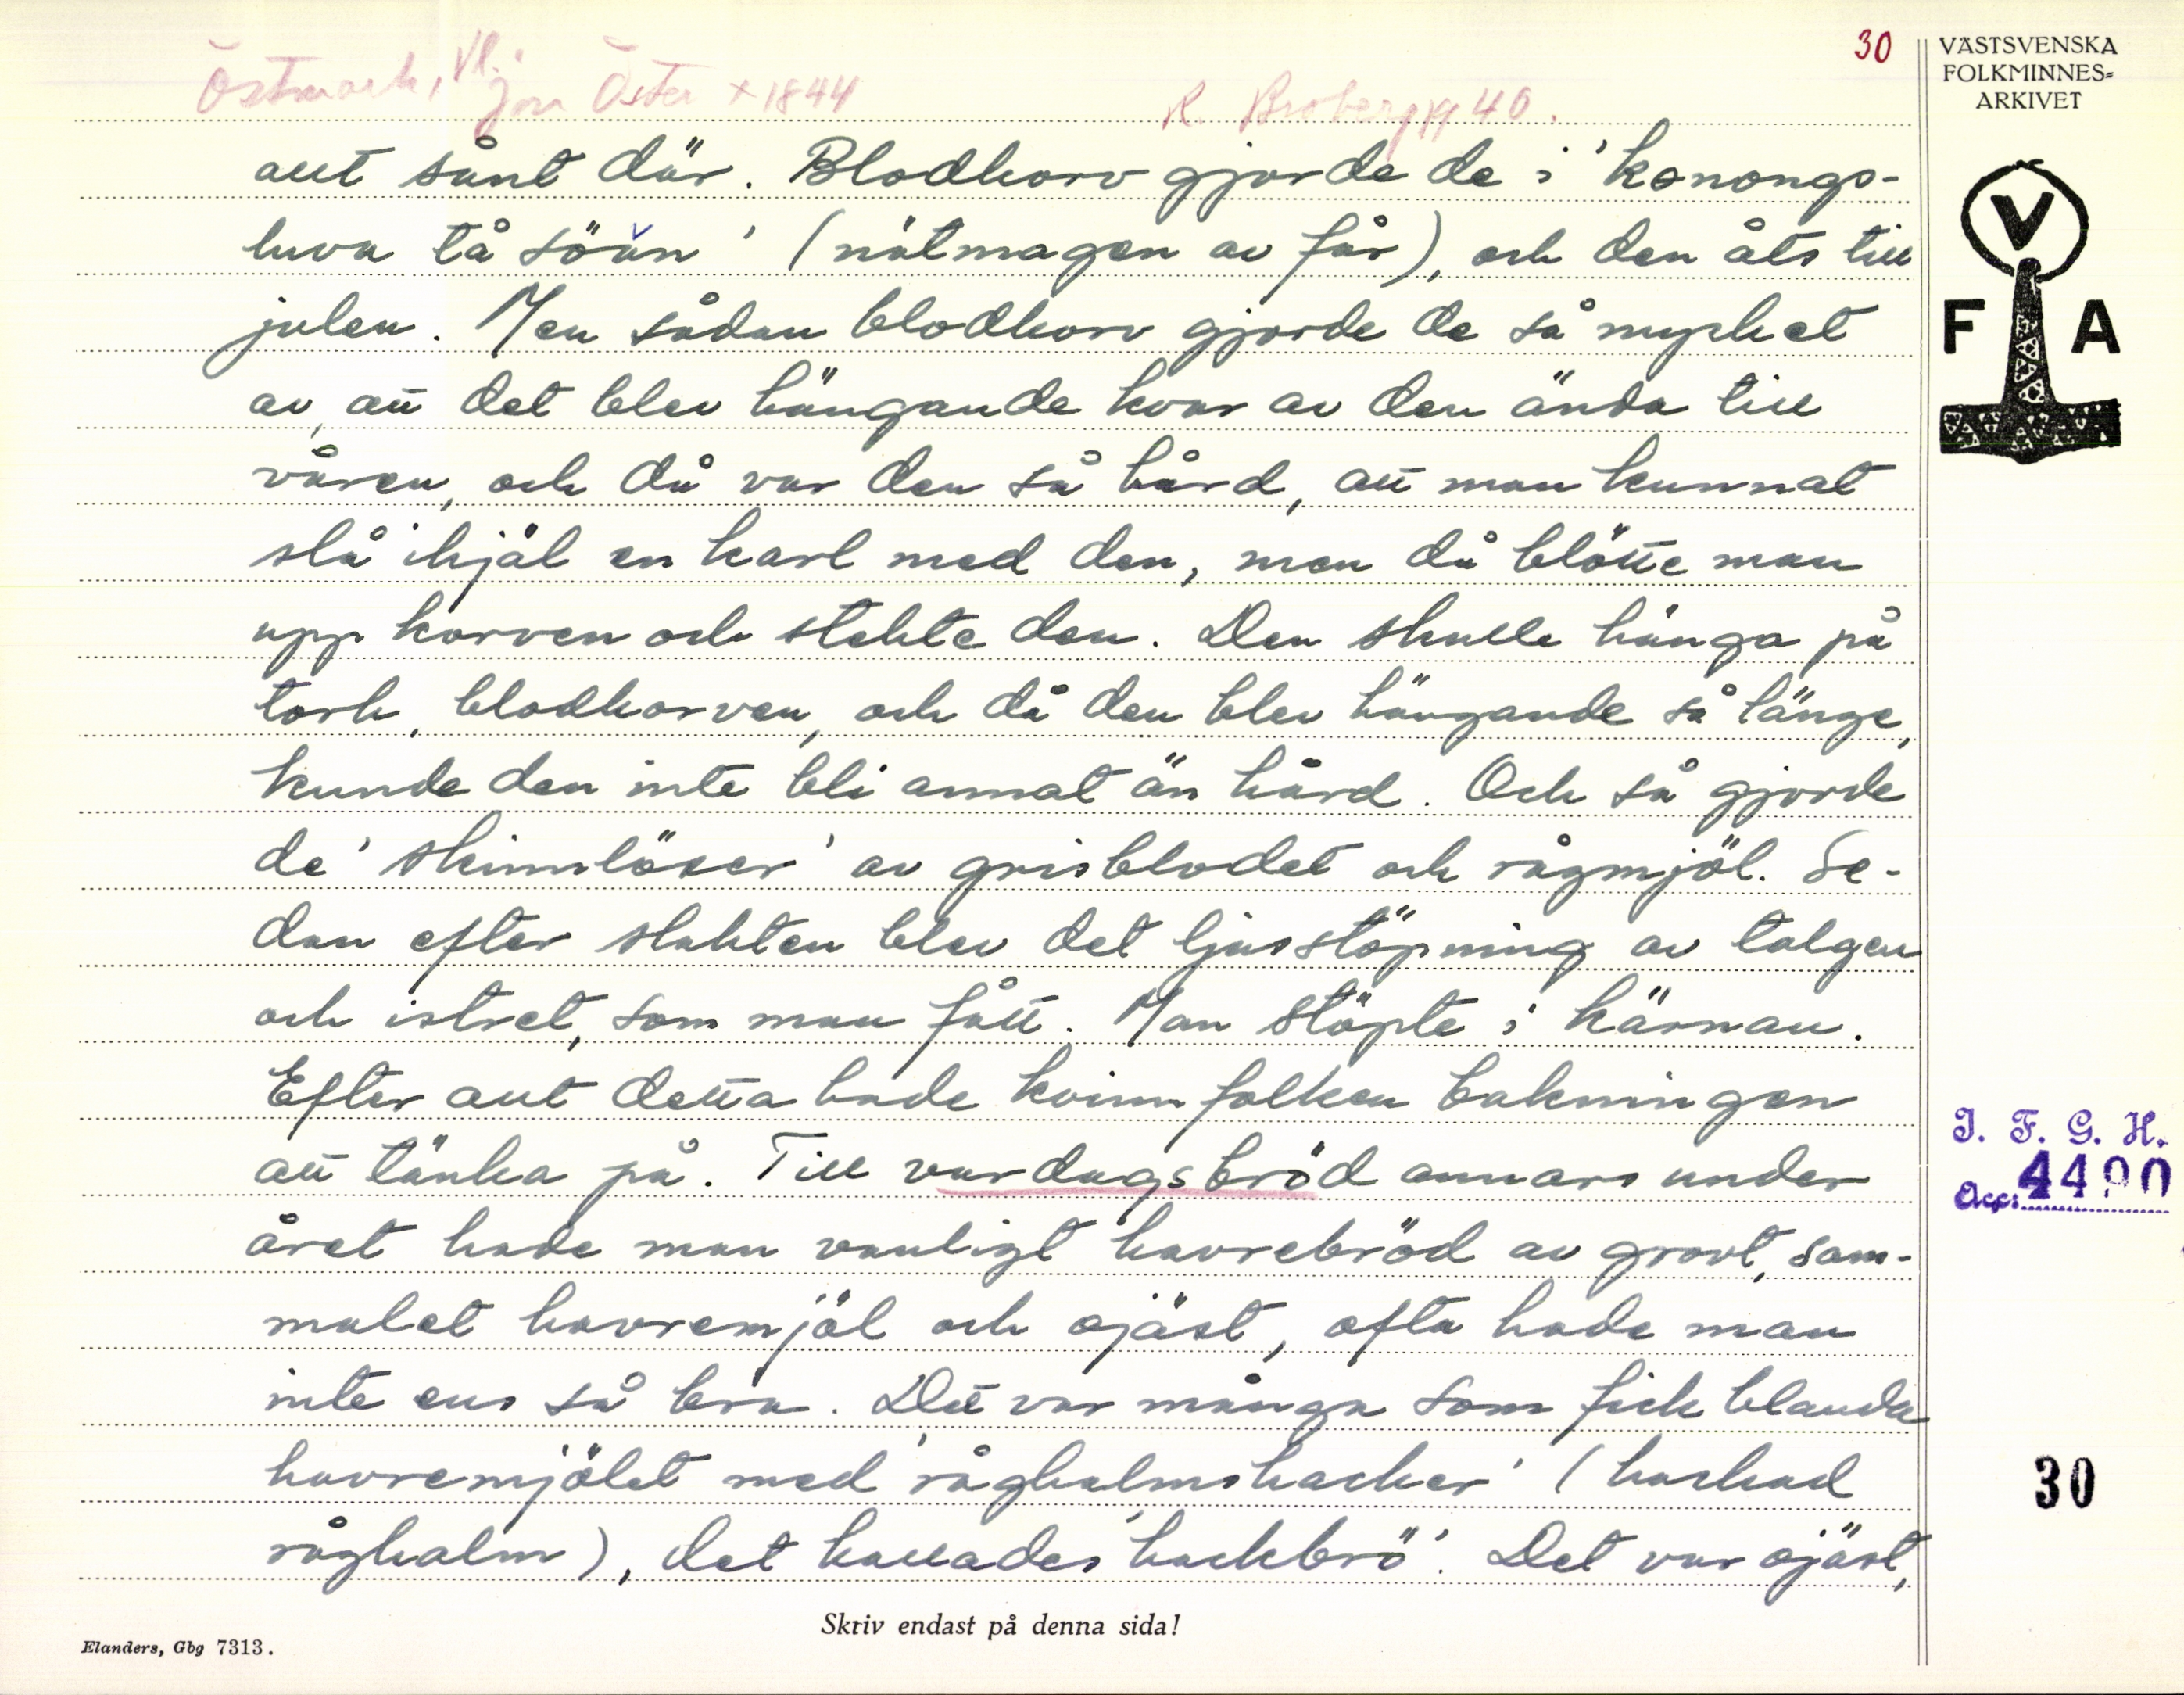 30
Östmark, Vl. Jon Öster * 1844 R. Broberg 40.
allt sånt där. Blodkorv gjorde de i 'konongs-
luva tå söän' (nätmagen av får), och den åts till
julen. Men sådan blodkorv gjorde de så mycket
av, att det blev hängande kvar av den ända till
våren, och då var den så hård, att man kunnat
slå ihjäl en karl med den, men då blötte man
upp korven och stekte den. Den skulle hänga på
tork, blodkorven, och då den blev hängande så länge,
kunde den inte bli annat än hård. Och så gjorde
de 'skinnlöser' av grisblodet och rågmjöl. Se-
dan efter slakten blev det ljusstöpning av talgen
och istret, som man fått. Man stöpte i kärnan.
Efter allt detta hade kvinnfolken bakningen
att tänka på. Till vardagsbröd annars under
året hade man vanligt havrebröd av grovt, sam-
malet havremjöl och ojäst, ofta hade man
inte ens så bra. Det var många som fick blanda
havremjölet med 'råghalmshacker' (hackad
råghalm), det kallades 'hackbrö'. Det var ojäst,
Skriv endast på denna sida!
Elanders, Gbg 7313.
VÄSTSVENSKA
FOLKMINNES=
ARKIVET
V
F A
I. F. G. H.
Acc: 4490
30